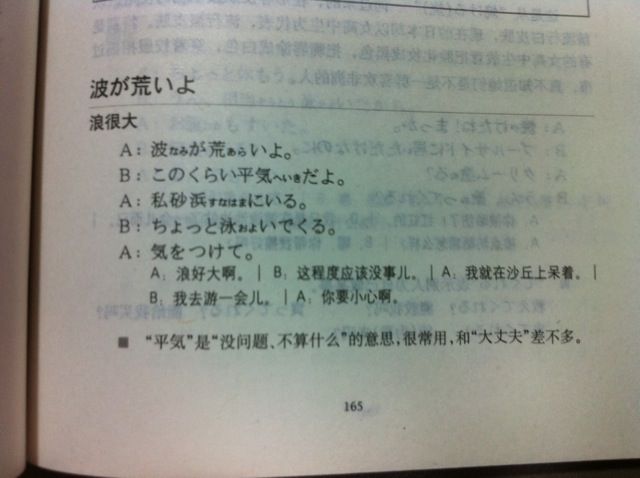 波が荒いよ
浪很大
A：波なみが荒あらいよ。
B：このくらい平気へいきだよ。
A：私砂浜すなはまにいる。
B：ちょっと泳およいでくる。
A：気をつけて。
A：浪好大啊。｜B：这程度应该没事儿。｜A：我就在沙丘上呆着。｜
B：我去游一会儿。｜A：你要小心啊。
■ “平気”是“没问题、不算什么”的意思，很常用，和“大丈夫”差不多。
165